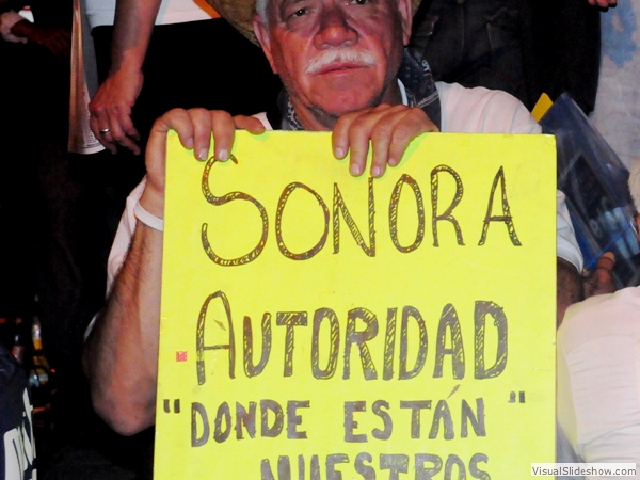 SONORA
AUTORIDAD
"DONDE ESTÁN"
NUESTROS
VisualSlideshow.com